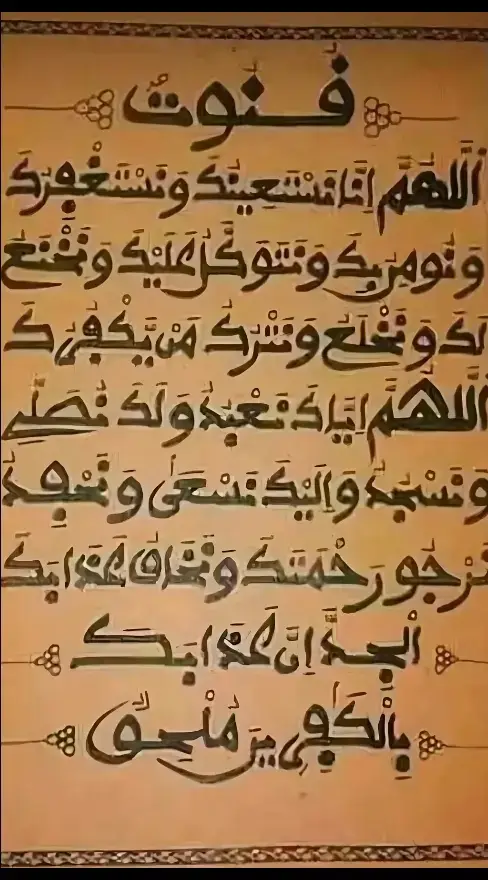 فنوت
اللهم إنا نستعينك ونستغفرك
ونومن بك ونتوكل عليك ونخنع
لك ونخلع ونترك من يكفرك
اللهم إياك نعبد ولك نصلي
ونسجد وإليك نسعى ونحفد
نرجو رحمتك ونخاف عذابك
الجد إن عذابك
بالكفرين ملحق